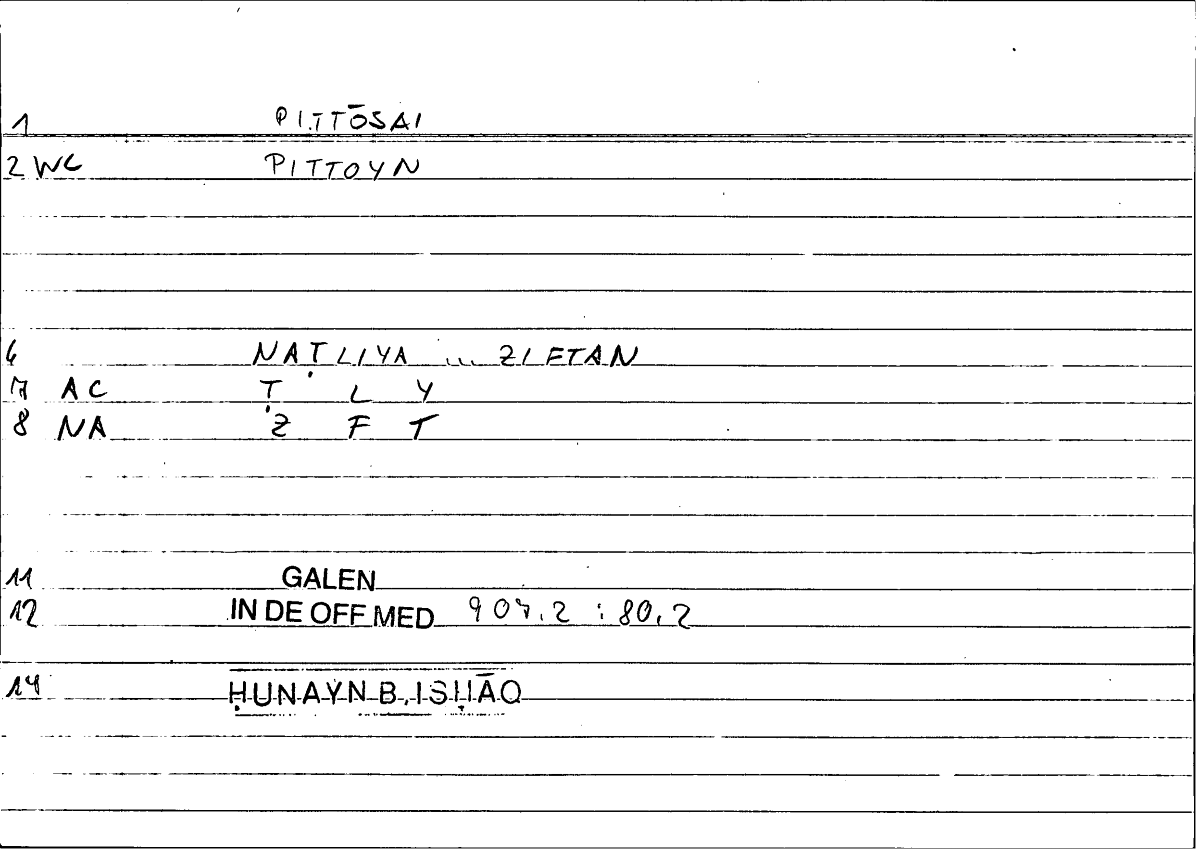 1 PITTŌSAI
2 WC PITTOYN
6 NAṬLIYA ... ZIFTAN
7 AC Ṭ L Y
8 NA Z F T
11 GALEN
12 IN DE OFF MED 907.2 : 80.2
14 ḤUNAYN B. ISḤĀQ